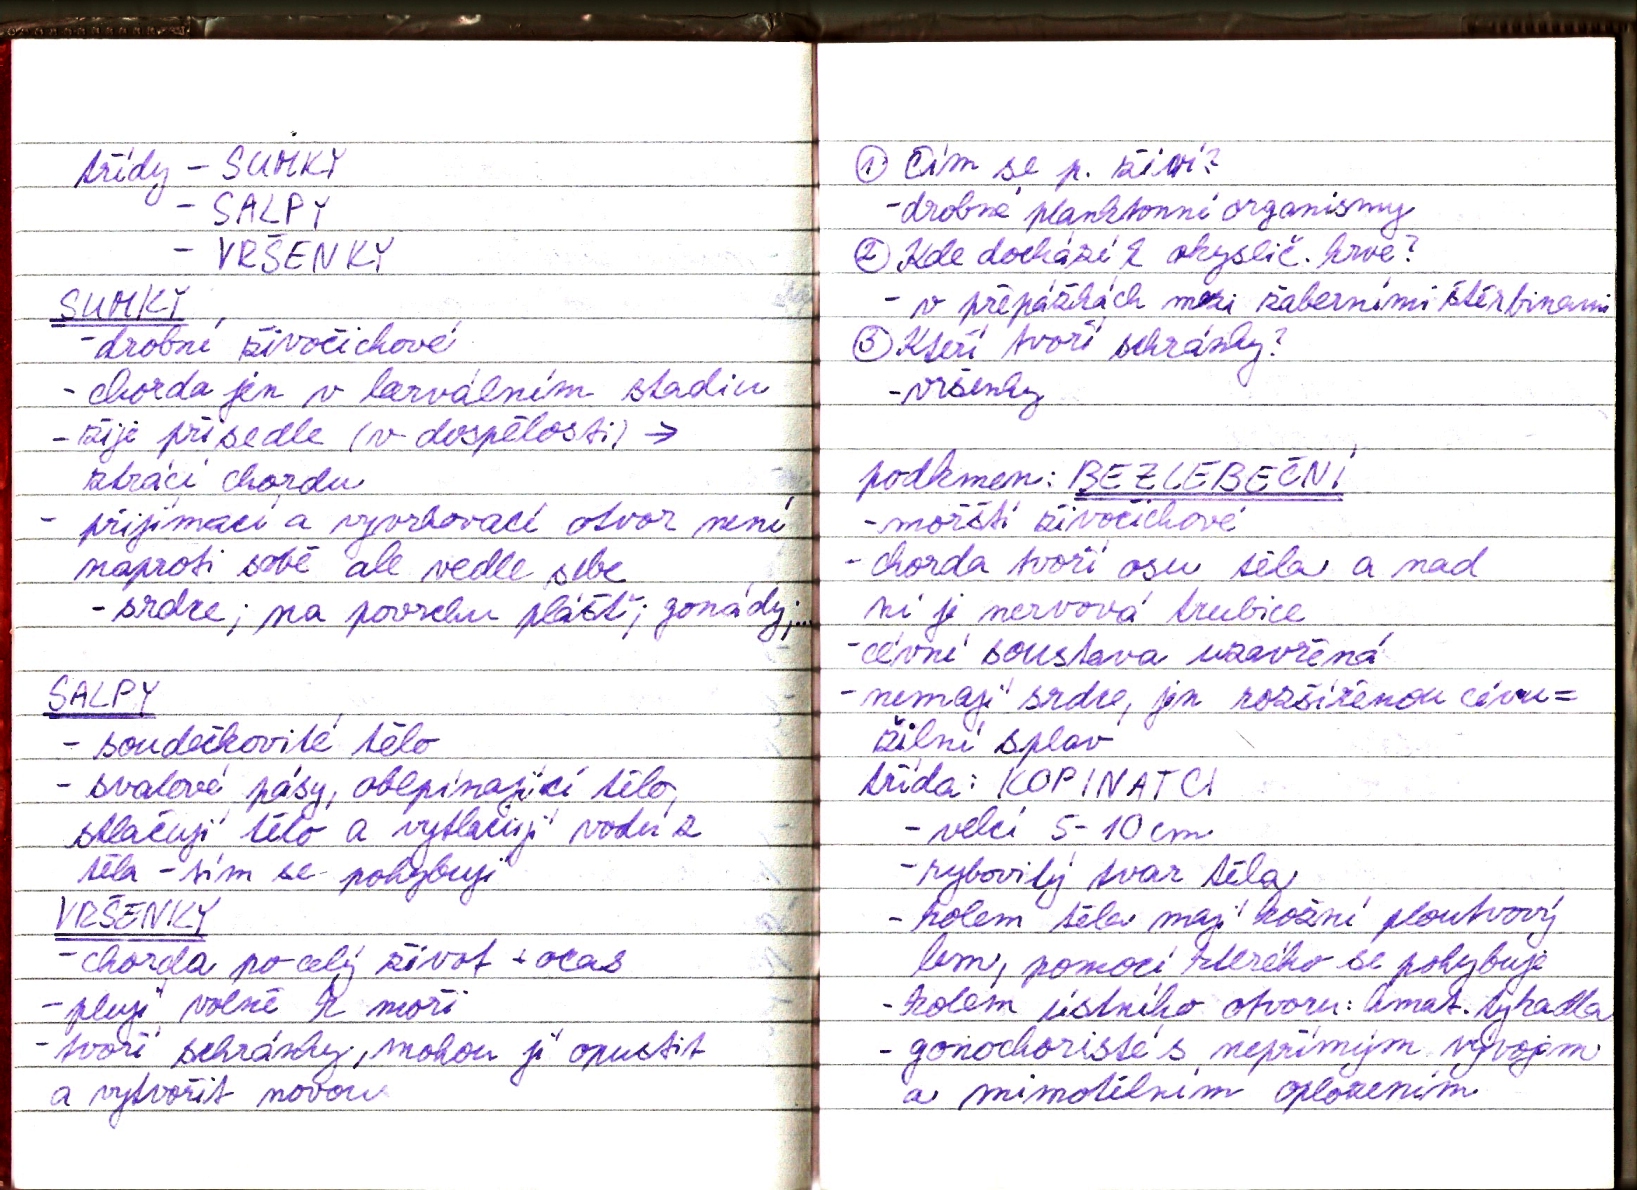 třídy - SUMKY
- SALPY
- VRŠENKY
SUMKY
- drobní živočichové
- chorda jen v larválním stadiu
- žijí přisedle (v dospělosti) →
ztrácí chordu
- přijímací a vyvrhovací otvor není
naproti sobě ale vedle sebe
- srdce; na povrchu plášť; gonády;...
SALPY
- soudečkovité tělo
- svalové pásy, oblepínající tělo,
stlačují tělo a vytlačují vodu z
těla - tím se pohybují
VRŠENKY
- chorda po celý život + ocas
- plují volně v moři
- tvoří schránky, mohou ji opustit
a vytvořit novou
① Čím se p. živí?
- drobné planktonní organismy
② Kde dochází k okyslič. krve?
- v přepážkách mezi žaberními štěrbinami
③ Kteří tvoří schránky?
- vršenky
podkmen: BEZLEBEČNÍ
- mořští živočichové
- chorda tvoří osu těla a nad
ní je nervová trubice
- cévní soustava uzavřená
- nemají srdce, jen rozšířenou cévu =
žilní splav
třída: KOPINATCI
- velcí 5-10cm
- rybovitý tvar těla
- kolem těla mají kožní ploutvový
lem, pomocí kterého se pohybuje
- kolem ústního otvoru: hmat. tykadla
- gonochoristé s nepřímým vývojem
a mimotělním oplozením